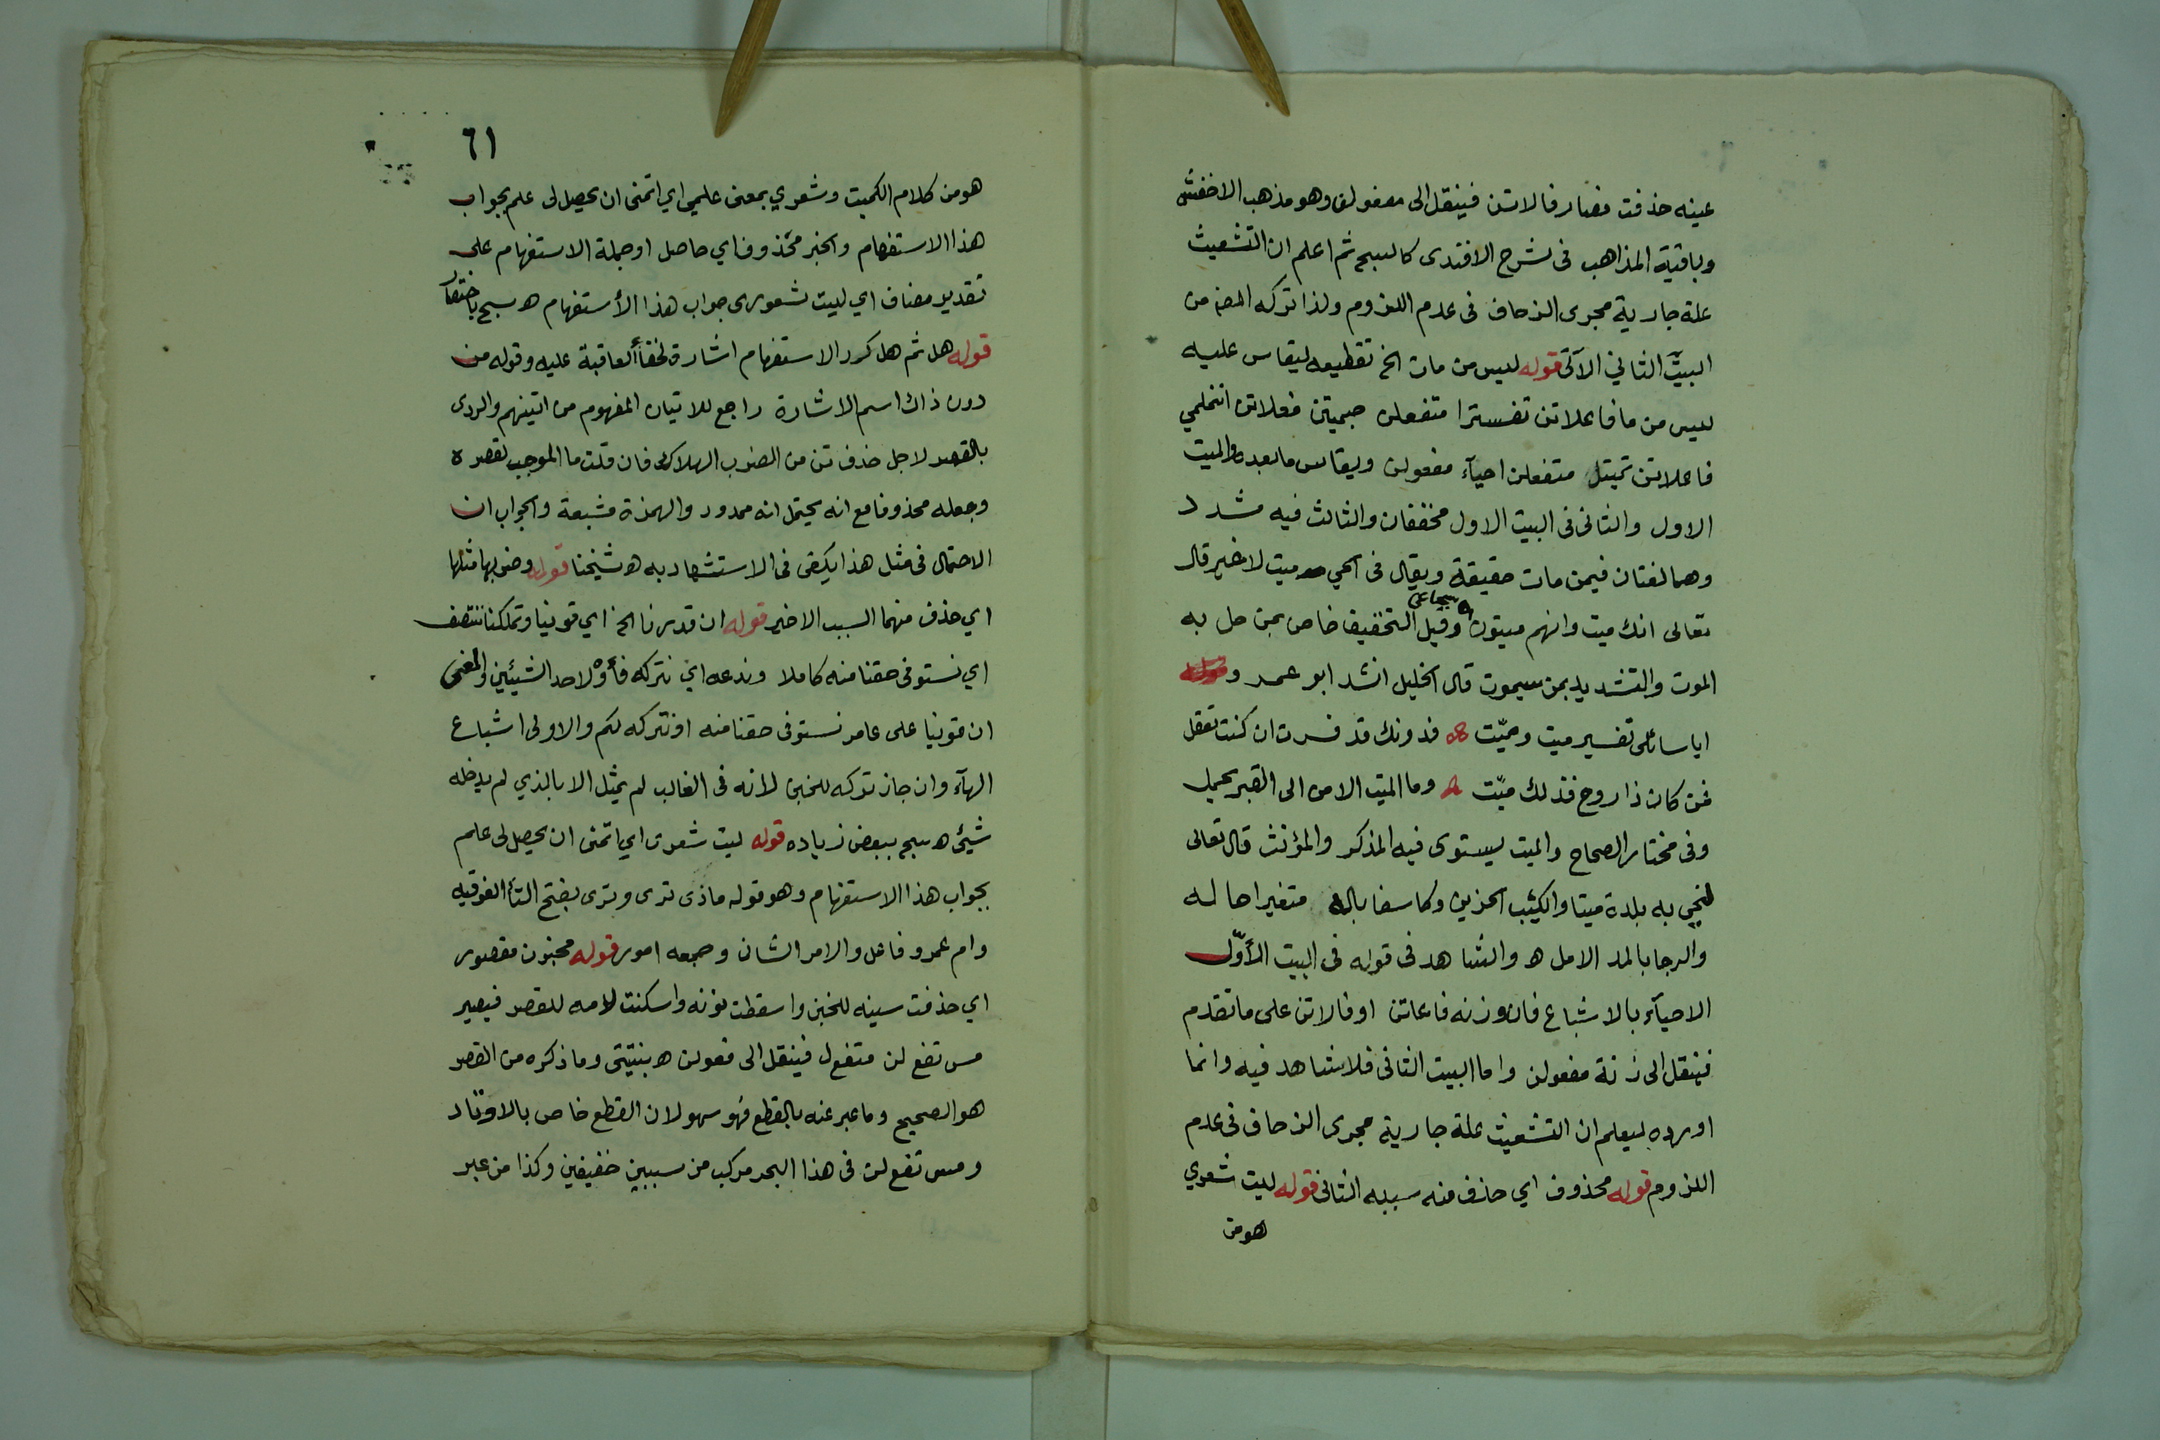 عينه حذفت فصار فالاتن فينقل الى مفعولن وهو مذهب الاخفش
وباقية المذاهب فى شرح الافندى كالسبج ثم اعلم ان التشعيث
علة جارية مجرى الزحاف فى عدم اللزوم ولذا تركه المصنف من
البيت الثاني الآتى قوله ليس من مات الخ تقطيعه ليقاس عليه
ليس من ما فاعلاتن تفسترا متفعلن حبميتن فعلاتن اننلمي
فاعلاتن تميتل متفعلن احيآء مفعولن ويقاس مابعده والميت
الاول والثانى فى البيت الاول مخففان والثالث فيه مشدد
وهما لغتان فيمن مات حقيقة ويقال فى الحي ميت لاغير قال
تعالى انك ميت وانهم ميتون ه سجاعى وقيل التخفيف خاص بمن حل به
الموت والتشديد بمن سيموت قال الخليل انشد ابو عمرو
ايا سائلى تفسير ميت وميّت ه فدونك قد فسرت ان كنت تعقل
فمن كان ذا روح فذلك ميّت ه وما الميت الا من الى القبر يحمل
وفى مختار الصحاح والميت يستوى فيه المذكر والمؤنث قال تعالى
لنحيي به بلدة ميتا والكئيب الحزين وكاسفا باله متغيرا حاله
والرجا بالمد الامل ه والشاهد فى قوله فى البيت الأوّل
الاحيآء بالاشباع فان وزنه فاعاتن او فالاتن على ما تقدم
فينقل الى زنة مفعولن واما البيت الثانى فلا شاهد فيه وانما
اورده ليعلم ان التشعيث علة جارية مجرى الزحاف فى عدم
اللزوم قوله محذوف اي حذف منه سببه الثانى قوله ليت شعري
هو من
٦١
هو من كلام الكميت وشعري بمعنى علمي اي اتمنى ان يحصل لى علم بجواب
هذا الاستفهام والخبر محذوف اي حاصل او جملة الاستفهام على
تقدير مضاف اي ليت شعورى جواب هذا الأستفهام ه سبج باختصار
قوله هل ثم هل كرر الاستفهام اشارة لخفأ العاقبة عليه وقوله من
دون ذاك اسم الاشارة راجع للاتيان المفهوم من اتينهم والردى
بالقصر لاجل حذف تن من الضرب الهلاك فان قلت ما الموجب لقصره
وجعله محذوفا مع انه يحتمل انه ممدود والهمزة مشبعة والجواب ان
الاحتمال فى مثل هذا يكفى فى الاستشهاد به ه شيخنا قوله وضربها مثلها
اي حذف منهما السبب الاخير قوله ان قدرنا الخ اي قوينا وتملكنا ننتصف
اي نستوفى حقنا منه كاملا وندعه اي نتركه فأو لاحد الشيئين والمعنى
ان قوينا على عامر نستوفى حقنا منه او نتركه لكم والاولى اشباع
الهآء وان جاز تركه للخبن لانه فى الغالب لم يمثل الا بالذي لم يدخله
شيئ ه سبج ببعض زياده قوله ليت شعرى اي اتمنى ان يحصل لى علم
بجواب هذا الاستفهام وهو قوله ماذى ترى وترى بفتح التأ الفوقيه
وام عمرو فاعل والامر الشان وجمعه امور قوله مخبون مقصور
اي حذفت سينه للخبن واسقطت نونه واسكنت لامه للقصر فيصير
مس تفع لن متفع ل فينقل الى فعولن ه بنتيتى وما ذكره من القصر
هو الصحيح وما عبر عنه بالقطع فهو سهو لان القطع خاص بالاوتاد
ومس تفع لن فى هذا البحر مركب من سببين خفيفين وكذا من عبر